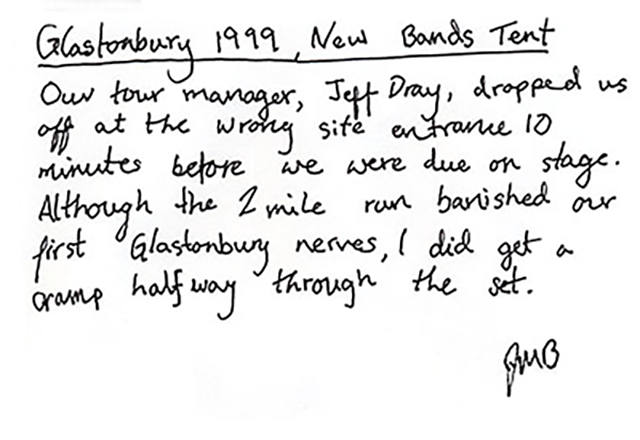 Glastonbury 1999, New Bands Tent
Our tour manager, Jeff Dray, dropped us
off at the wrong site entrance 10
minutes before we were due on stage.
Although the 2 mile run banished our
first Glastonbury nerves, I did get a
cramp halfway through the set.
JMB